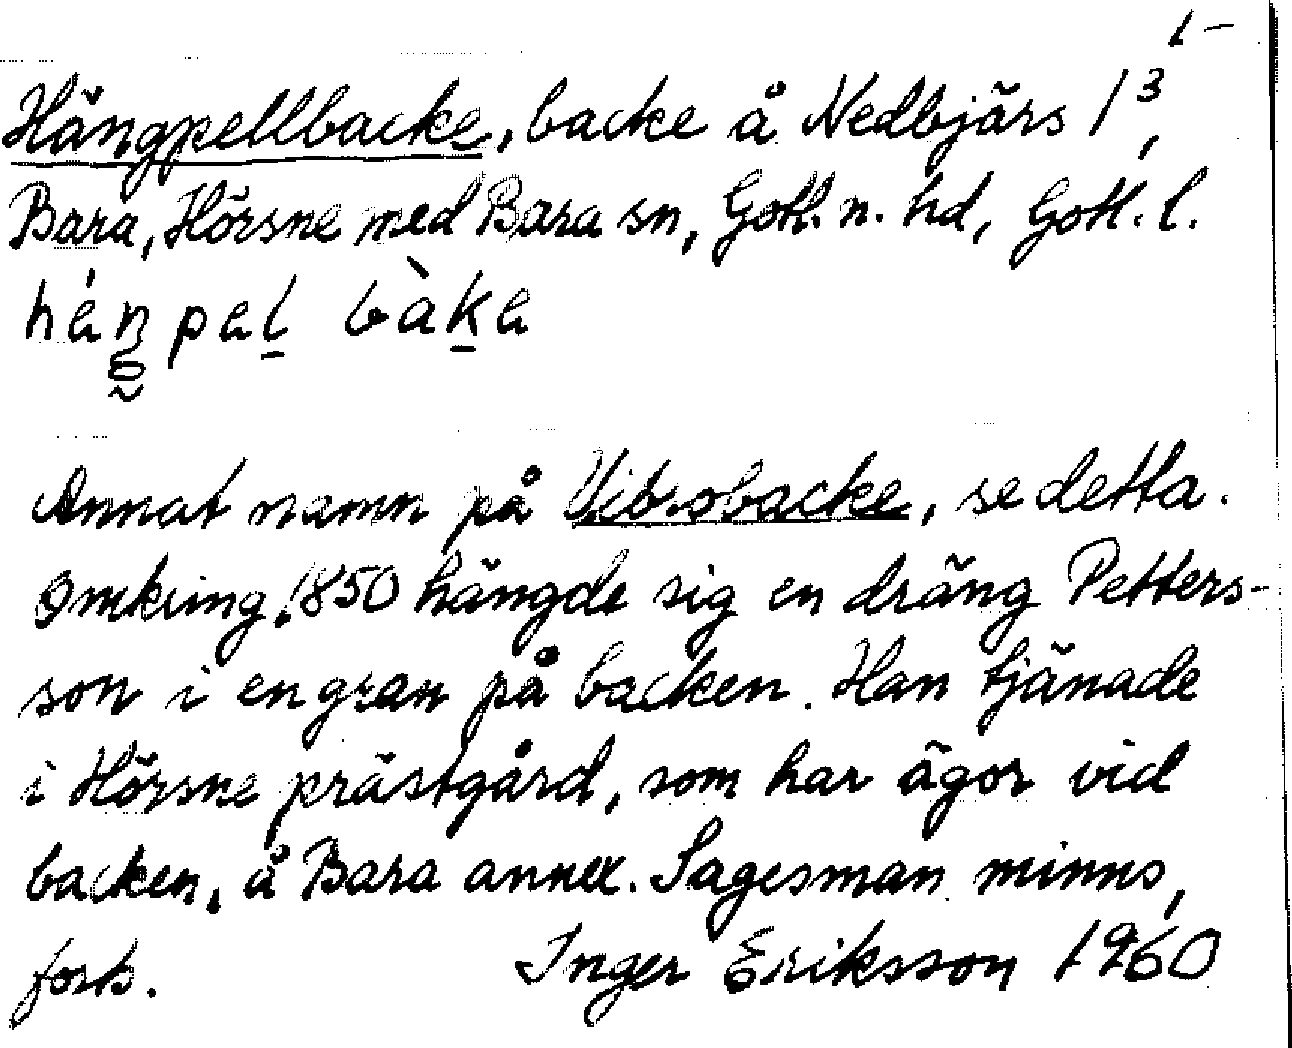 1-
Hängpellbacke, backe å Nedbjärs 1³,
Bara, Hörsne med Bara sn, Gotl. n. hd, Gotl. l.
Annat namn på Vibsobacke, se detta.
Omkring 1850 hängde sig en dräng Petters-
son i en gran på backen. Han tjänade
i Hörsne prästgård, som har ägor vid
backen, å Bara annex. Sagesman minns,
forts. Inger Eriksson 1960